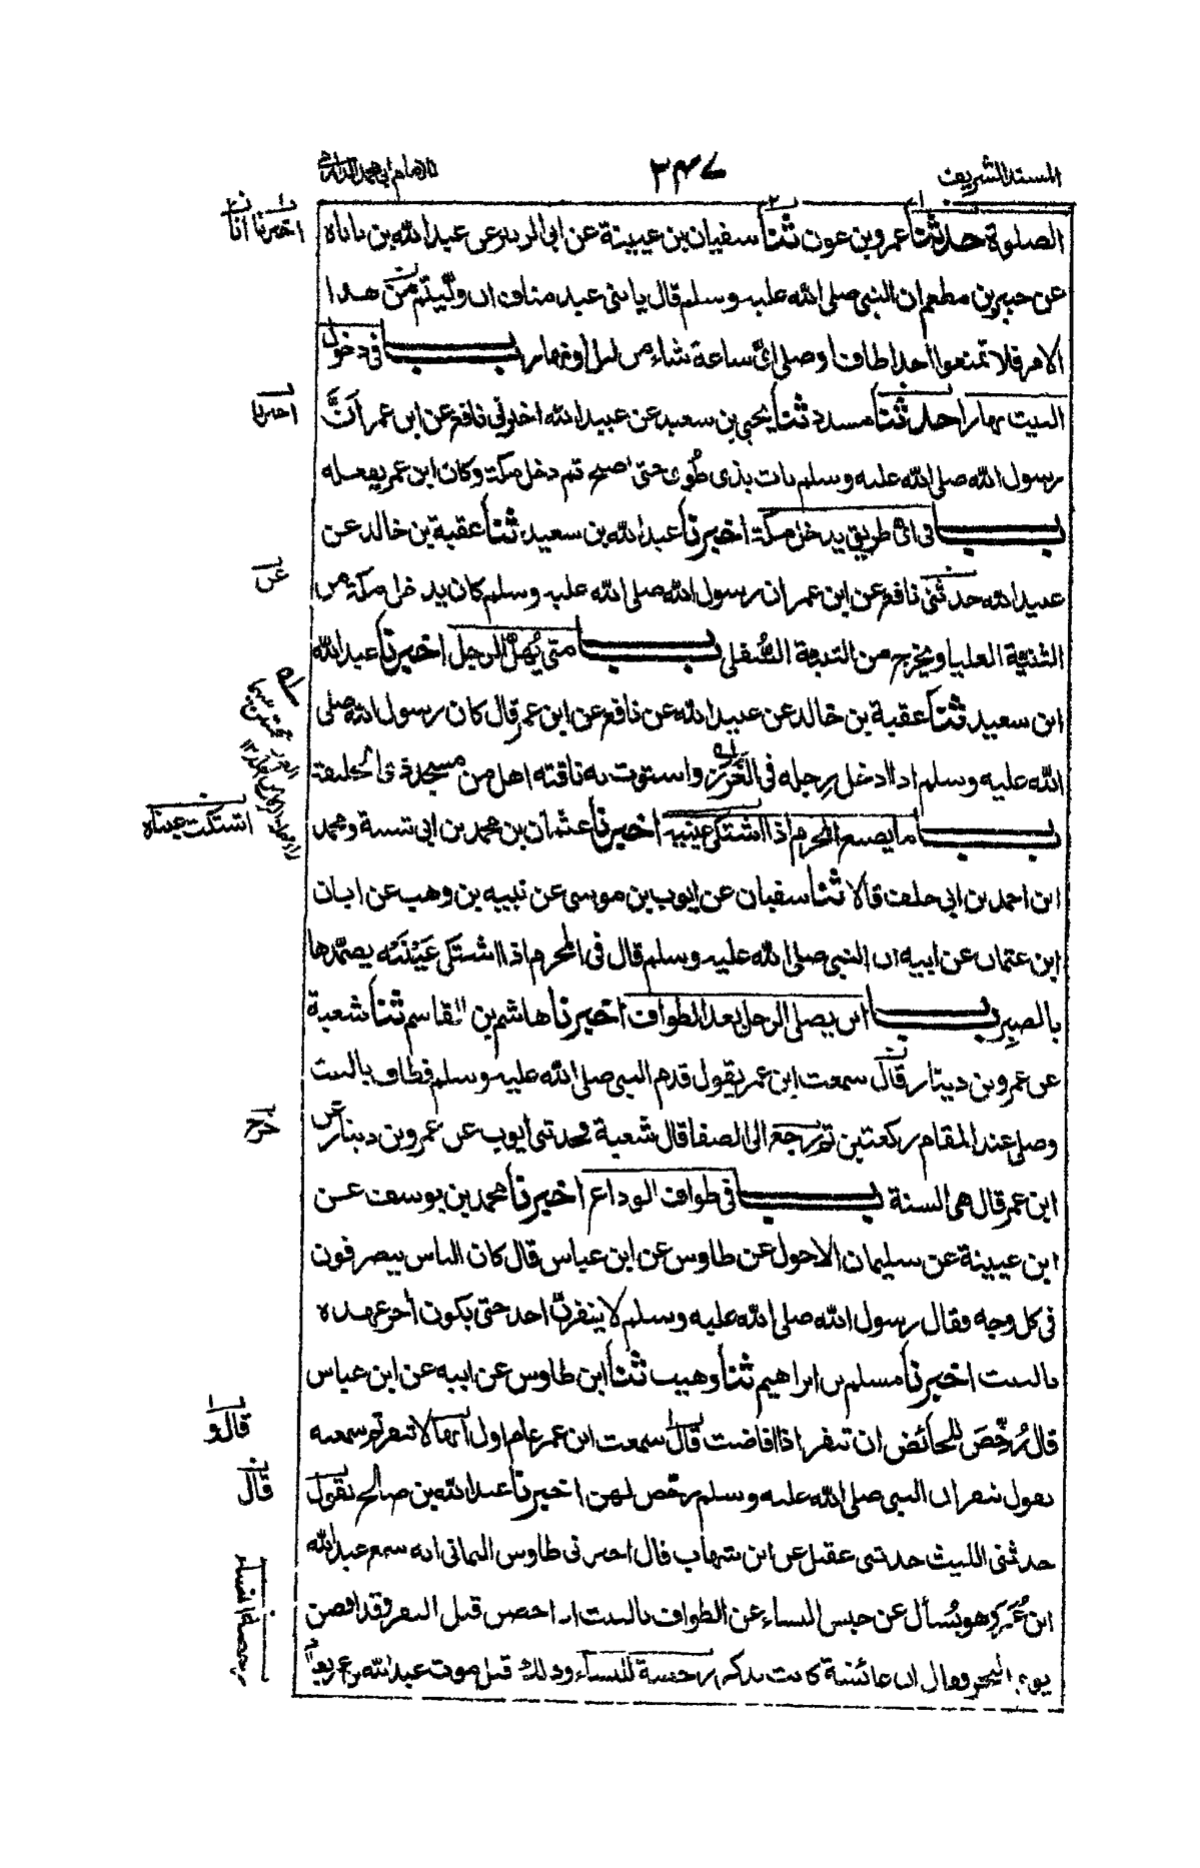 المسند الشريف
٣٤٧
للامام ابي محمد الدارمي
الصلوة حدثنا عمرو بن عون ثنا سفيان بن عيينة عن ابي الزبير عن عبد الله بن باباه
عن جبير بن مطعم ان النبي صلى الله عليه وسلم قال يا بنى عبد مناف ان وليتم من هذا
الامر فلا تمنعوا احدا طاف او صلى اىّ ساعة شاء من ليل او نهار باب فى دخول
البيت نهارا حدثنا مسدد ثنا يحيى بن سعيد عن عبيد الله اخبرنى نافع عن ابن عمر انَّ
رسول الله صلى الله عليه وسلم بات بذى طُوى حتى اصبح ثم دخل مكة وكان ابن عمر يفعله
باب فى اى طريق يدخل مكة اخبرنا عبد الله بن سعيد ثنا عقبة بن خالد عن
عبيد الله حدثنى نافع عن ابن عمر ان رسول الله صلى الله عليه وسلم كان يدخل مكة من
الثنيّة العليا ويخرج من الثنية السُّفلى باب متى يُهلّ الرجل اخبرنا عبد الله
ابن سعيد ثنا عقبة بن خالد عن عبيد الله عن نافع عن ابن عمر قال كان رسول الله صلى
الله عليه وسلم اذا ادخل رجله فى الغَرْزِ واستوت به ناقته اهل من مسجد ذى الحليفة
باب ما يصنع المحرم اذا اشتكى عينيه اخبرنا عثمان بن محمد بن ابى شيبة ومحمد
ابن احمد بن ابى خلف قالا ثنا سفيان عن ايوب بن موسى عن نبيه بن وهب عن ابان
ابن عثمان عن ابيه ان النبى صلى الله عليه وسلم قال فى المحرم اذا اشتكى عَيْنَيْه يضمّدها
بالصبِر باب اين يصلى الرجل بعد الطواف اخبرنا هاشم بن القاسم ثنا شعبة
عن عمرو بن دينار قال سمعت ابن عمر يقول قدم النبى صلى الله عليه وسلم فطاف بالبيت
وصلى عند المقام ركعتين ثم رجع الى الصفا قال شعبة فحدثنى ايوب عن عمرو بن دينار عن
ابن عمر قال هى السنة باب فى طواف الوداع اخبرنا محمد بن يوسف عن
ابن عيينة عن سليمان الاحول عن طاوس عن ابن عباس قال كان الناس ينصرفون
فى كل وجه فقال رسول الله صلى الله عليه وسلم لا ينفرنّ احد حتى يكون اخر عهده
بالبيت اخبرنا مسلم بن ابراهيم ثنا وهيب ثنا ابن طاوس عن ابيه عن ابن عباس
قال رُخّصَ للحائض ان تنفر اذا افاضت قال سمعت ابن عمر عام اول انها لا تنفر ثم سمعته
يقول تنفر ان النبى صلى الله عليه وسلم رخّص لهن اخبرنا عبد الله بن صالح يقول
حدثنى الليث حدثنى عقيل عن ابن شهاب قال اخبرنى طاوس اليمانى انه سمع عبد الله
ابن عُمَرَ وهو يُسأل عن حبس النساء عن الطواف بالبيت اذا حضن قبل النفر وقد افضن
يوم النحر فقال ان عائشة كانت تذكر رخصة للنساء وذلك قبل موت عبد الله بن عمر بعام
اخبرنا انا
اخبرنا
عن
اشتكت عيناه
قال و
قال
رخصة النساء